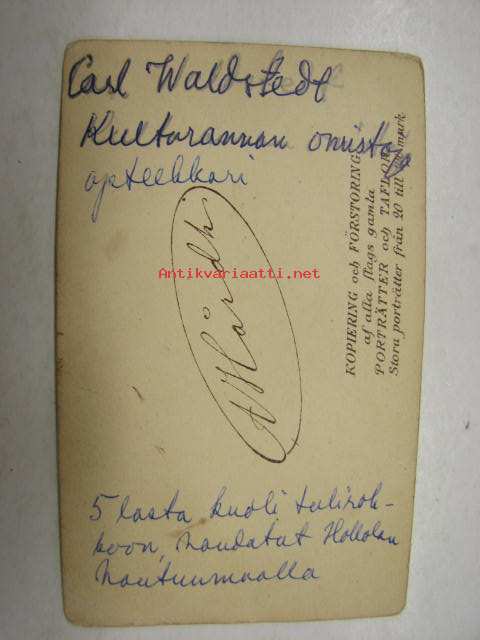 Carl Waldstedt
Kultarannan omistaja
apteekkari
Antikvariaatti.net
A Hårdh
KOPIERING och FÖRSTORING
af alla slags gamla
PORTRÄTTER och TAFLOR
Stora porträtter från 20 till mark
5 lasta kuoli tulirok-
koon, haudatut Hollolan
hautuumaalla